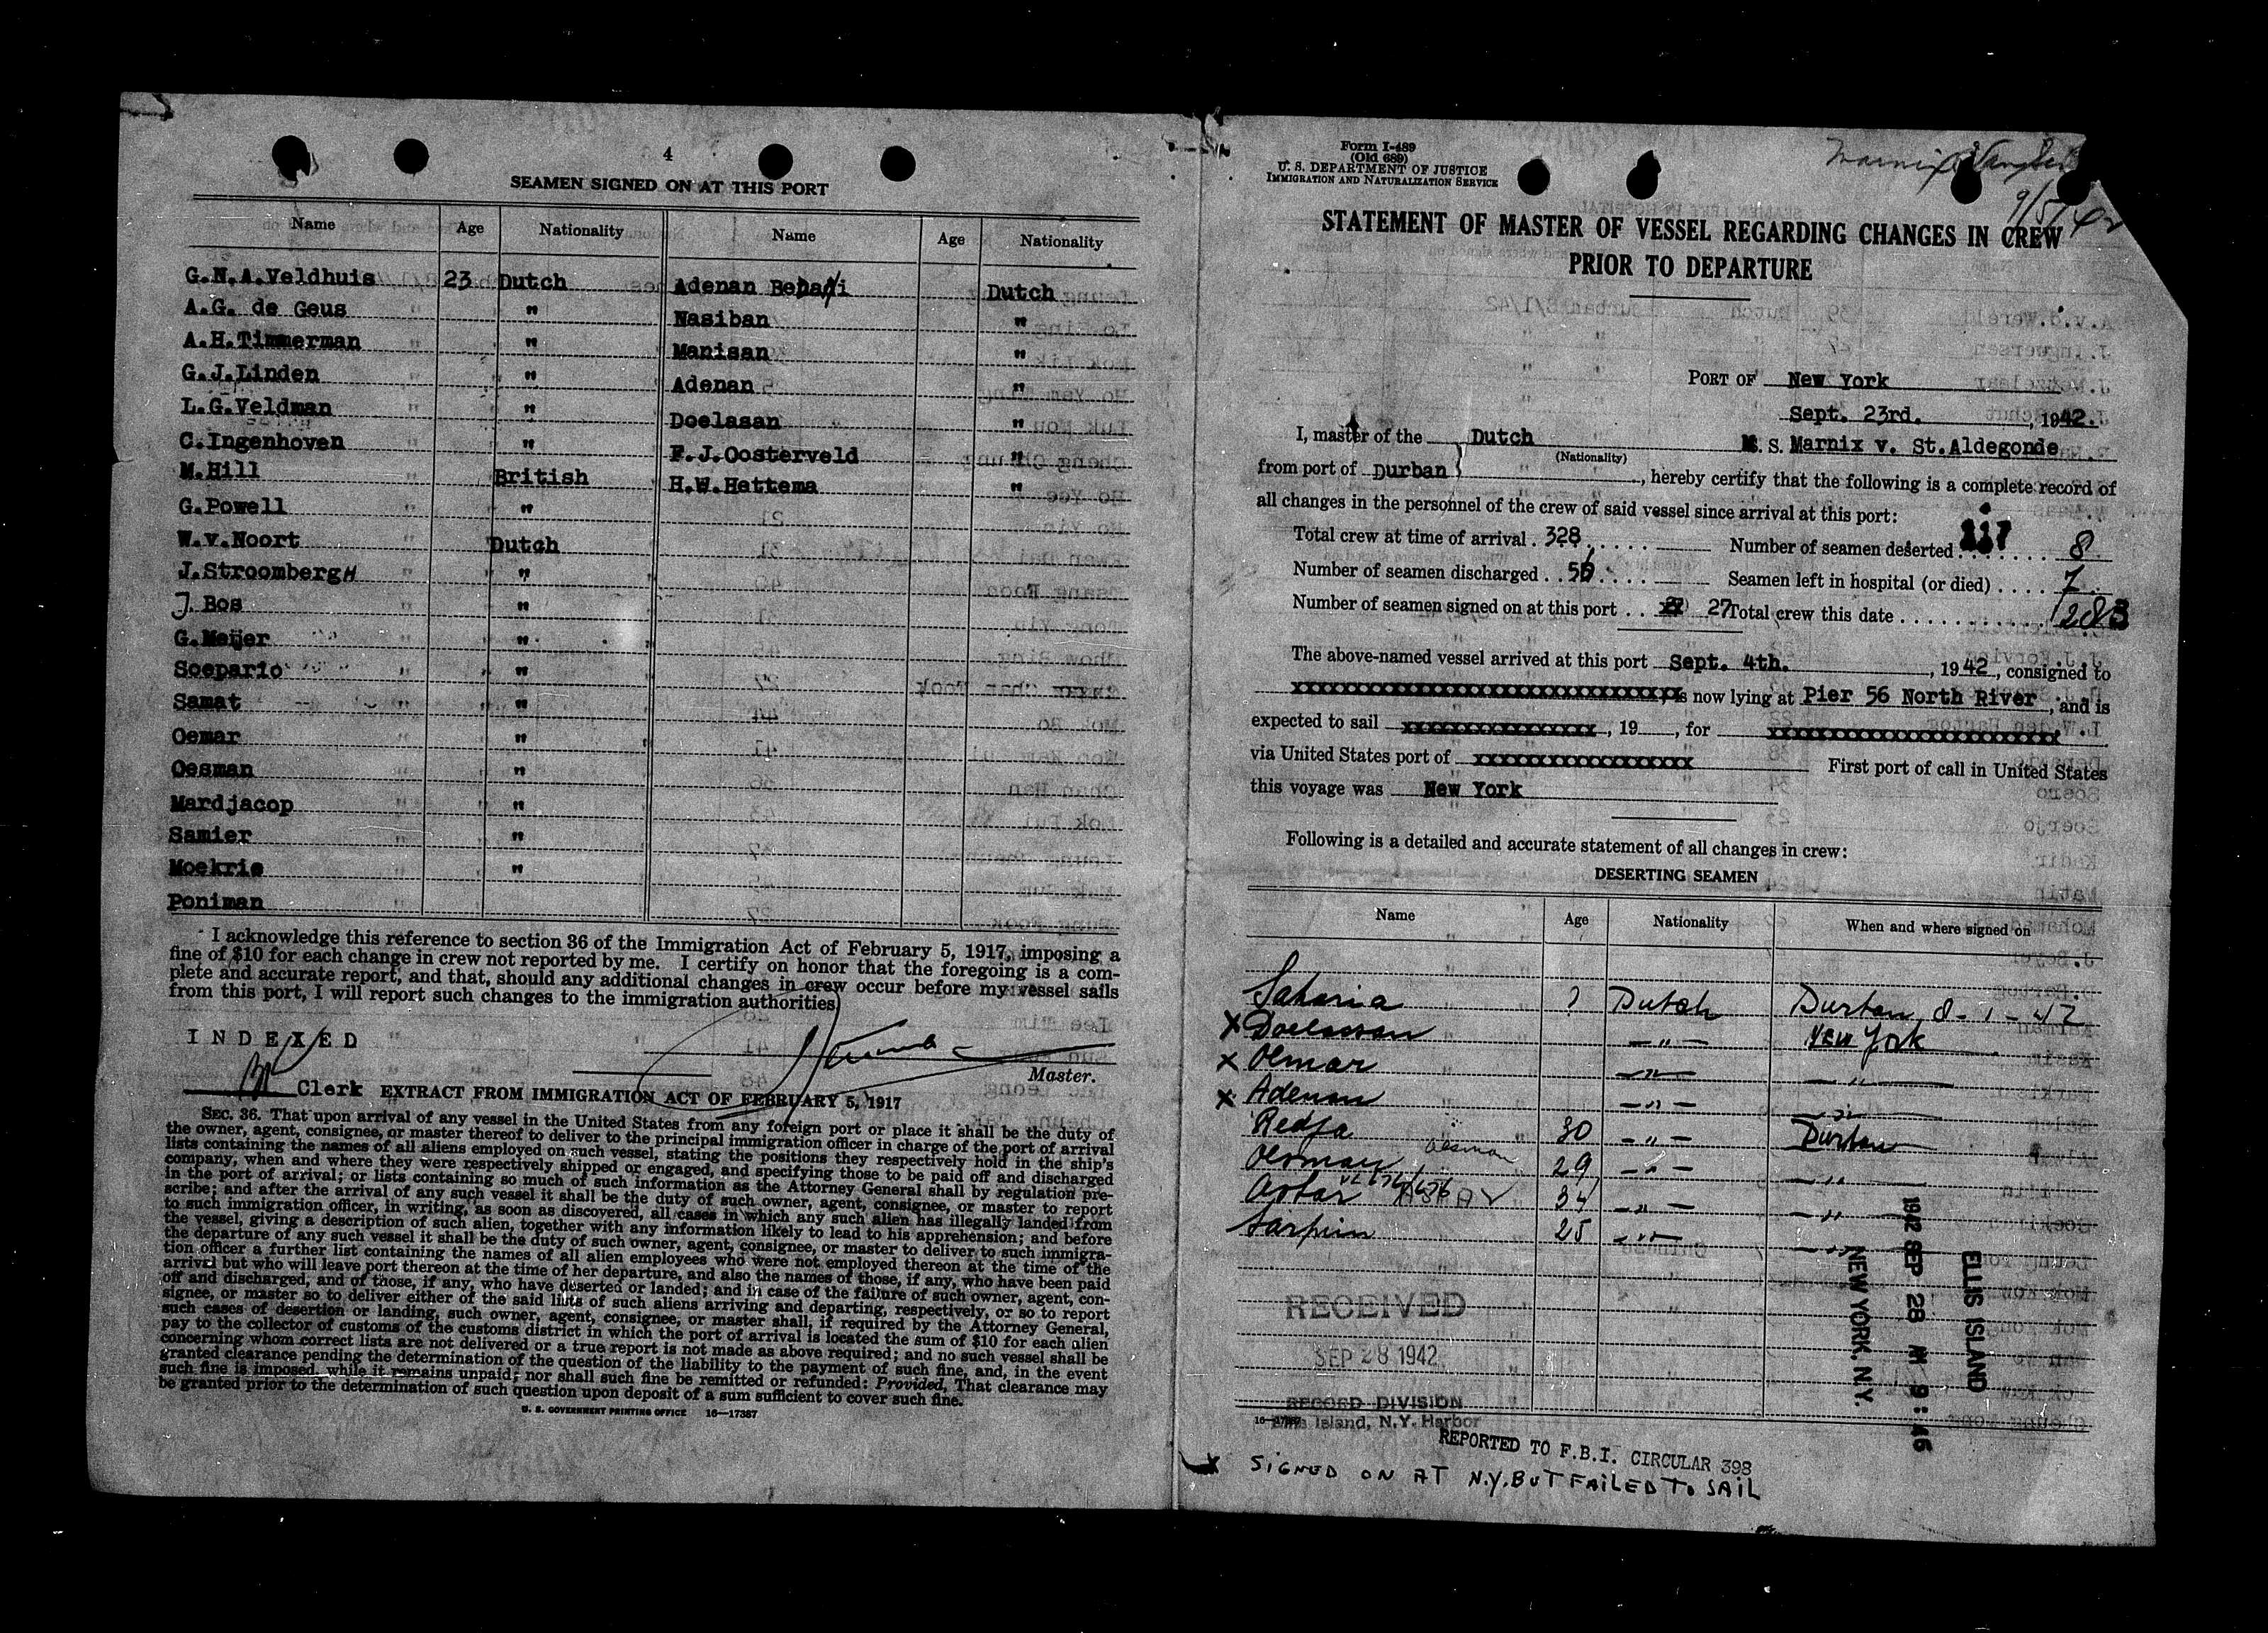 4
SEAMEN SIGNED ON AT THIS PORT
Name Age Nationality Name Age Nationality
G.N.A.Veldhuis 23 Dutch Adenan Dutch
A.G. de Geus " Nasiban "
A.H.Timmerman " Manisan "
G.J.Linden " Adenan "
L.G.Veldman " Doelasan "
C.Ingenhoven " F.J.Oosterveld "
M.Hill British H.W.Hettema "
G.Powell "
W.v.Noort Dutch
J.Stroombergh "
J.Bos "
G.Meijer "
Soepario "
Samat "
Oemar "
Oesman "
Mardjacop "
Samier "
Moekrie "
Poniman
I acknowledge this reference to section 36 of the Immigration Act of February 5, 1917, imposing a
fine of $10 for each change in crew not reported by me. I certify on honor that the foregoing is a com-
plete and accurate report, and that, should any additional changes in crew occur before my vessel sails
from this port, I will report such changes to the immigration authorities.
INDEXED
Master.
Clerk EXTRACT FROM IMMIGRATION ACT OF FEBRUARY 5, 1917
SEC. 36. That upon arrival of any vessel in the United States from any foreign port or place it shall be the duty of
the owner, agent, consignee, or master thereof to deliver to the principal immigration officer in charge of the port of arrival
lists containing the names of all aliens employed on such vessel, stating the positions they respectively hold in the ship's
company, when and where they were respectively shipped or engaged, and specifying those to be paid off and discharged
in the port of arrival; or lists containing so much of such information as the Attorney General shall by regulation pre-
scribe; and after the arrival of any such vessel it shall be the duty of such owner, agent, consignee, or master to report
to such immigration officer, in writing, as soon as discovered, all cases in which any such alien has illegally landed from
the vessel, giving a description of such alien, together with any information likely to lead to his apprehension; and before
the departure of any such vessel it shall be the duty of such owner, agent, consignee, or master to deliver to such immigra-
tion officer a further list containing the names of all alien employees who were not employed thereon at the time of the
arrival but who will leave port thereon at the time of her departure, and also the names of those, if any, who have been paid
off and discharged, and of those, if any, who have deserted or landed; and in case of the failure of such owner, agent, con-
signee, or master so to deliver either of the said lists of such aliens arriving and departing, respectively, or so to report
such cases of desertion or landing, such owner, agent, consignee, or master shall, if required by the Attorney General,
pay to the collector of customs of the customs district in which the port of arrival is located the sum of $10 for each alien
concerning whom correct lists are not delivered or a true report is not made as above required; and no such vessel shall be
granted clearance pending the determination of the question of the liability to the payment of such fine, and, in the event
such fine is imposed, while it remains unpaid; nor shall such fine be remitted or refunded: Provided, That clearance may
be granted prior to the determination of such question upon deposit of a sum sufficient to cover such fine.
U. S. GOVERNMENT PRINTING OFFICE 16—17387
Form I-489
(Old 689)
U. S. DEPARTMENT OF JUSTICE
IMMIGRATION AND NATURALIZATION SERVICE
Marnix
9/5/42
STATEMENT OF MASTER OF VESSEL REGARDING CHANGES IN CREW
PRIOR TO DEPARTURE
PORT OF New York
Sept. 23rd. , 1942.
I, master of the Dutch M. S. Marnix v. St.Aldegonde
(Nationality)
from port of Durban , hereby certify that the following is a complete record of
all changes in the personnel of the crew of said vessel since arrival at this port:
Total crew at time of arrival . 328 Number of seamen deserted 8
Number of seamen discharged . . Seamen left in hospital (or died) . . . . 7
Number of seamen signed on at this port . . 27 Total crew this date
The above-named vessel arrived at this port Sept. 4th. , 1942, consigned to
xxxxxxxxxxxxxxxxxxxxxxxxxxxxxx, is now lying at Pier 56 North River , and is
expected to sail xxxxxxxxxxxxxxxx , 19 , for xxxxxxxxxxxxxxxxxxxxxxxx
via United States port of xxxxxxxxxxxxxxxxxx First port of call in United States
this voyage was New York
Following is a detailed and accurate statement of all changes in crew:
DESERTING SEAMEN
Name Age Nationality When and where signed on
Saharia ? Dutch Durban, 8-1-42
X Doelassan —"— New York
X Oemar —"— —"—
X Adenan —"— —"—
Redja 30 —"— Durban
Oesman Oesman 29 —"— —"—
Astar 34 —"— —"—
Sarpin 25 —"— —"—
RECEIVED
SEP 28 1942
RECORD DIVISION
Ellis Island, N.Y. Harbor
1942 SEP 28 AM 9:46
NEW YORK, N.Y.
ELLIS ISLAND
REPORTED TO F.B.I. CIRCULAR 398
X SIGNED ON AT N.Y. BUT FAILED TO SAIL